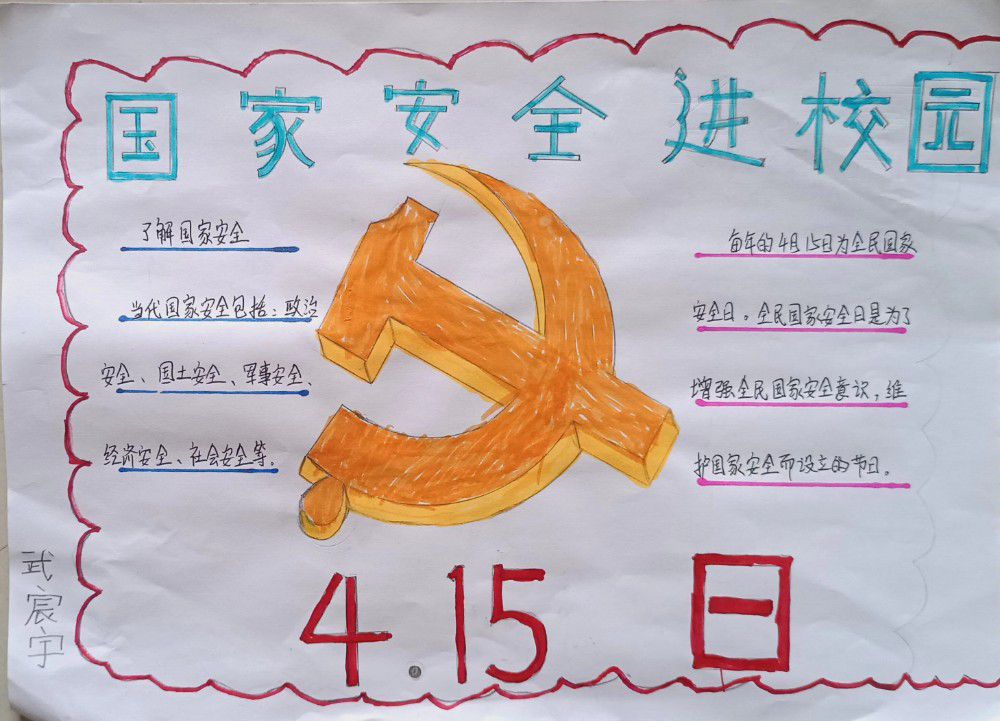 国家安全进校园
了解国家安全
当代国家安全包括：政治
安全、国土安全、军事安全、
经济安全、社会安全等。
每年的4月15日为全民国家
安全日。全民国家安全日是为了
增强全民国家安全意识，维
护国家安全而设立的节日。
4.15 日
武宸宇